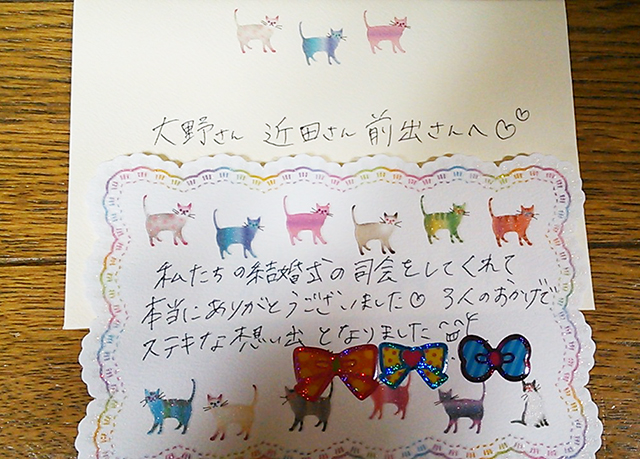 大野さん 近田さん 前出さんへ♡♡
私たちの結婚式の司会をしてくれて
本当にありがとうございました♡ 3人のおかげで
ステキな想い出となりました